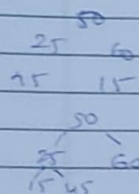 50
25 60
15 15
50
25 60
15 45